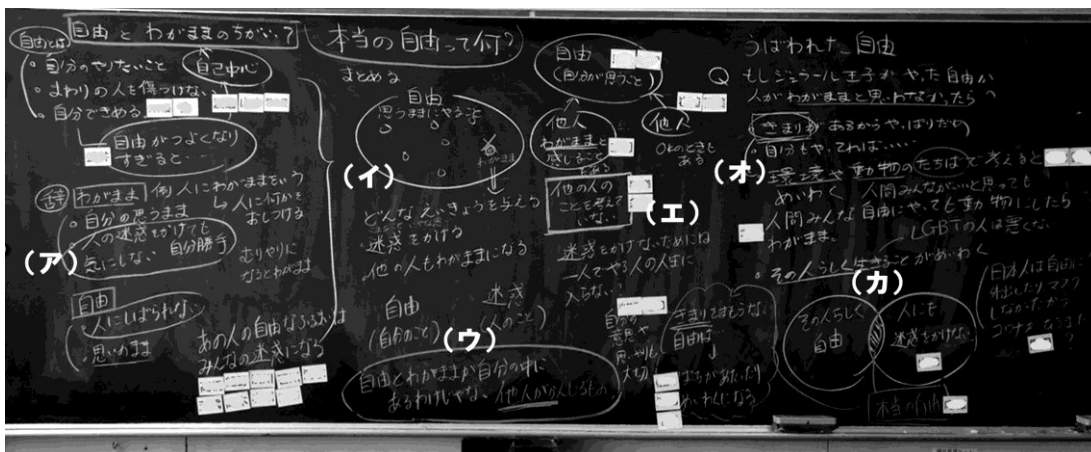 自由とわがままのちがい?
自由とは
・自分のやりたいこと
自己中心
・まわりの人を傷つけない
・自分できめる
自由がつよくなり
すぎると・・・・
辞 わがまま 例 人にわがままをいう
人に何かを
おしつける
・自分の思うまま
・人の迷惑をかけても
気にしない 自分勝手
むりやりに
なるとわがまま
(ア)
自由
・人にしばられない
・思いのまま
あの人の自由なふるまいは
みんなの迷惑になる
本当の自由って何?
まとめる
自由
思うままにやること
わがまま
(イ)
どんなえいきょうを与える
・迷惑をかける
・他の人もわがままになる
自由
(自分のこと)
迷惑
のこと)
(ウ)
自由とわがままが自分の中に
あるわけじゃない 他人がかんじるもの
自由
(自分が思うこと)
他人
わがままと
感じること
他人
OKのときも
ある
他の人の
ことを考えて
いない
(エ)
迷惑をかけないためには
一人でやる人の人生に
入らない
自分の
意思や
思いやりも
大切
きまりをまもらない
自由は
↓
ばちがあたったり
めいわくになる
うばわれた自由
Q
もしジェラール王子がやった自由が
人がわがままと思わなかったら?
きまりがあるからやっぱりだめ
・自分もやってれば・・・・
(オ)
・環境や動物のたちばで考えると
めいわく
人間みんなが・・・いいと思っても
人間みんな
自由にやっても動物にしたら
わがまま。
LGBTの人は悪くない
・その人らしく生きることがめいわく
(カ)
その人らしく
自由
人にも
迷惑をかけない
本当の自由
日本人は自由に
外出したりマスク
しなかったから